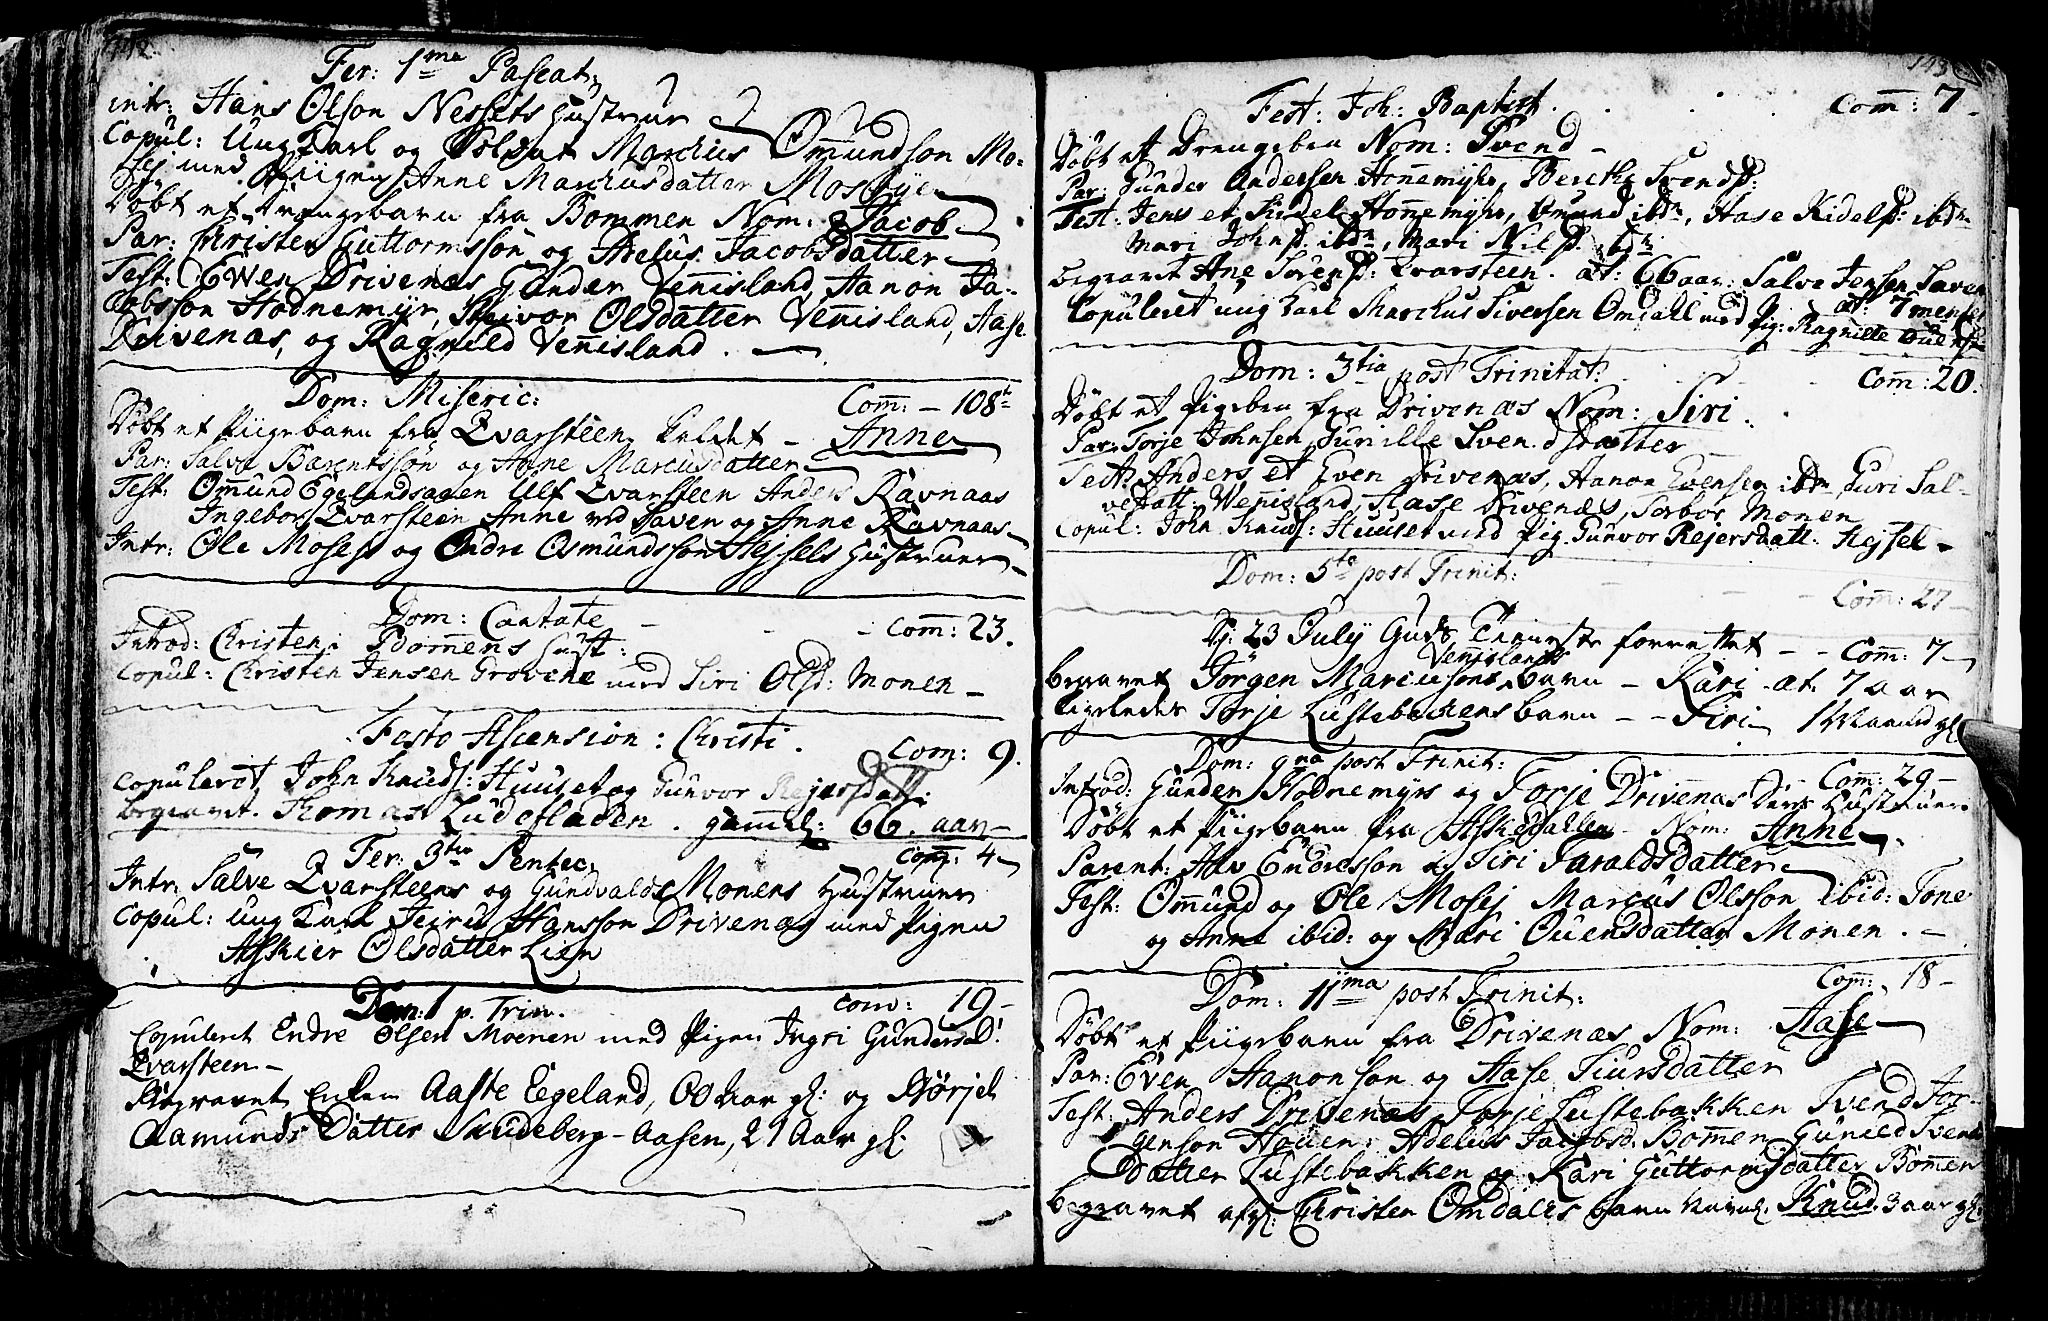 142.
Fer: 1ma Pascat:
intr: Hans Olson Nessets Hustrue
Copul: Ung Karl og Soldat Marchus Omundson Mo-
sej med Piigen Anne Marchusdatter Mosbye
Døbt et drengebarn fra Bommen Nom: Jacob
Par: Christen Guttormssøn og Adelus Jacobsdatter
Test: Ewen Drivenes Gunder Vennisland, Aanon Ja-
cobsson Hodnemyr, Steivor Olsdatter Vennisland, Aase
Drivenæs, og Ragnild Vennisland.
Dom: Miseric: Com: – 108
Døbt et Piigebarn fra Qvarsteen kaldet – Anne
Par: Salve Barentssøn og Anne Marcusdatter
Test: Ommund Egelandsaaen Ulf Qvarsteen Anders Ravnaas
Ingebor Qvarsteen Anne ved Saven og Anne Ravnaas
Intr: Ole Mosejs og Endre Osmundsson Hejsels Hustruer
Dom: Cantate – Com: 23.
Introd: Christen Bommens Hust:
Copul: Christen Jensen Grovene med Siri Olsd: Monen –
Festo Ascension: Christi. Com: 9.
Copuleret John Knuds: Huuset og Gunvor Rejersdatt:
Begravet. Tomas Ludefladen. gammel: 66. aar –
Fer: 3tia Pentec: Com: 4
Intr: Salve Qvarsteens og Gundvalds Monens Hustruer
Copul: Ung Karl Hansson Drivenæs med Pigen
Askier Olsdatter Lien
Dom: 1 p. Trin. Com: 19 –
Copuleret Endre Olsen Moenen med Pigen Ingri Gundersd:
Qvarsteen –
Begravet Enken Aaste Egeland, 60 Aar gl: og Børjel
Aamunds Datter Skudeberg-Aasen, 21 Aar gl:
143
Fest: Joh: Baptist. Com: 7
Døbt et Drengebn Nom: Svend –
Par: Gunder Andersen Honnemyhr, Berethe Svendsd:
Test: Jens et Kidel Honnemyhr, Omund ibdm, Aase Kidelsd: ibdm
Mari Johnsd. ibdm, Mari Nilsd. ibdm
begravet Ane Svensd: Qvarsteen. æt: 66 aar: Salve Jensen Saven
æt: 7 menses
Copuleret ung Karl Marchus Siversen Omdall med Pig: Ragnille
Dom: 3tia post Trinitat: Com: 20.
Døbt et Pigebn fra Drivenæs Nom: Siri
Par: Torje Johnsen, Gunille Svendsdatter
Test: Anders et Even Drivenæs, Aanon Evensen ibdm Guri Sal-
vesdatt Vennisland, Aase Drivenes, Torbor Monen
Copul: John Knuds: Huuset med Pig. Gunvor Rejersdatt: Hejsel –
Dom: 5te post Trinit: Com: 27 –
D: 23 July Guds Tieneste forrettet – – Com: 7
Vennislands
begravet Jørgen Marcusons barn – Kari æt. 7 aar
ligeledes Torje Lustebakkens barn – – Siri 1 Maaned gl.
Dom: 9na post Trinit: Com: 29 –
Introd: Gunder Hodnemyrs og Torje Drivenæs deres Hustruer.
Døbt et Piigebarn fra Askedallen Nom: Anne
Parent: Alv Endresson og Siri Taraldsdatter
Test: Ommund og Ole Mosej Marcus Olsson ibid: Tone
og Anne ibid: og Mari Ouensdatter Monen. –
Dom: 11ma post Trinit: Com: 18 –
Døbt et Piigebarn fra Drivenæs Nom: Aase
Par: Even Aanonson og Aase Siursdatter
Test: Anders Drivenæs, Torje Lustebakken Svend Jør-
genson Houen, Adelus Jacobsd. Bommen Gunild Svens-
datter Lustebakken og Kari Guttormsdatter Bommen
begravet Christen Omdals barn navnl. Knud 3 aar gl.